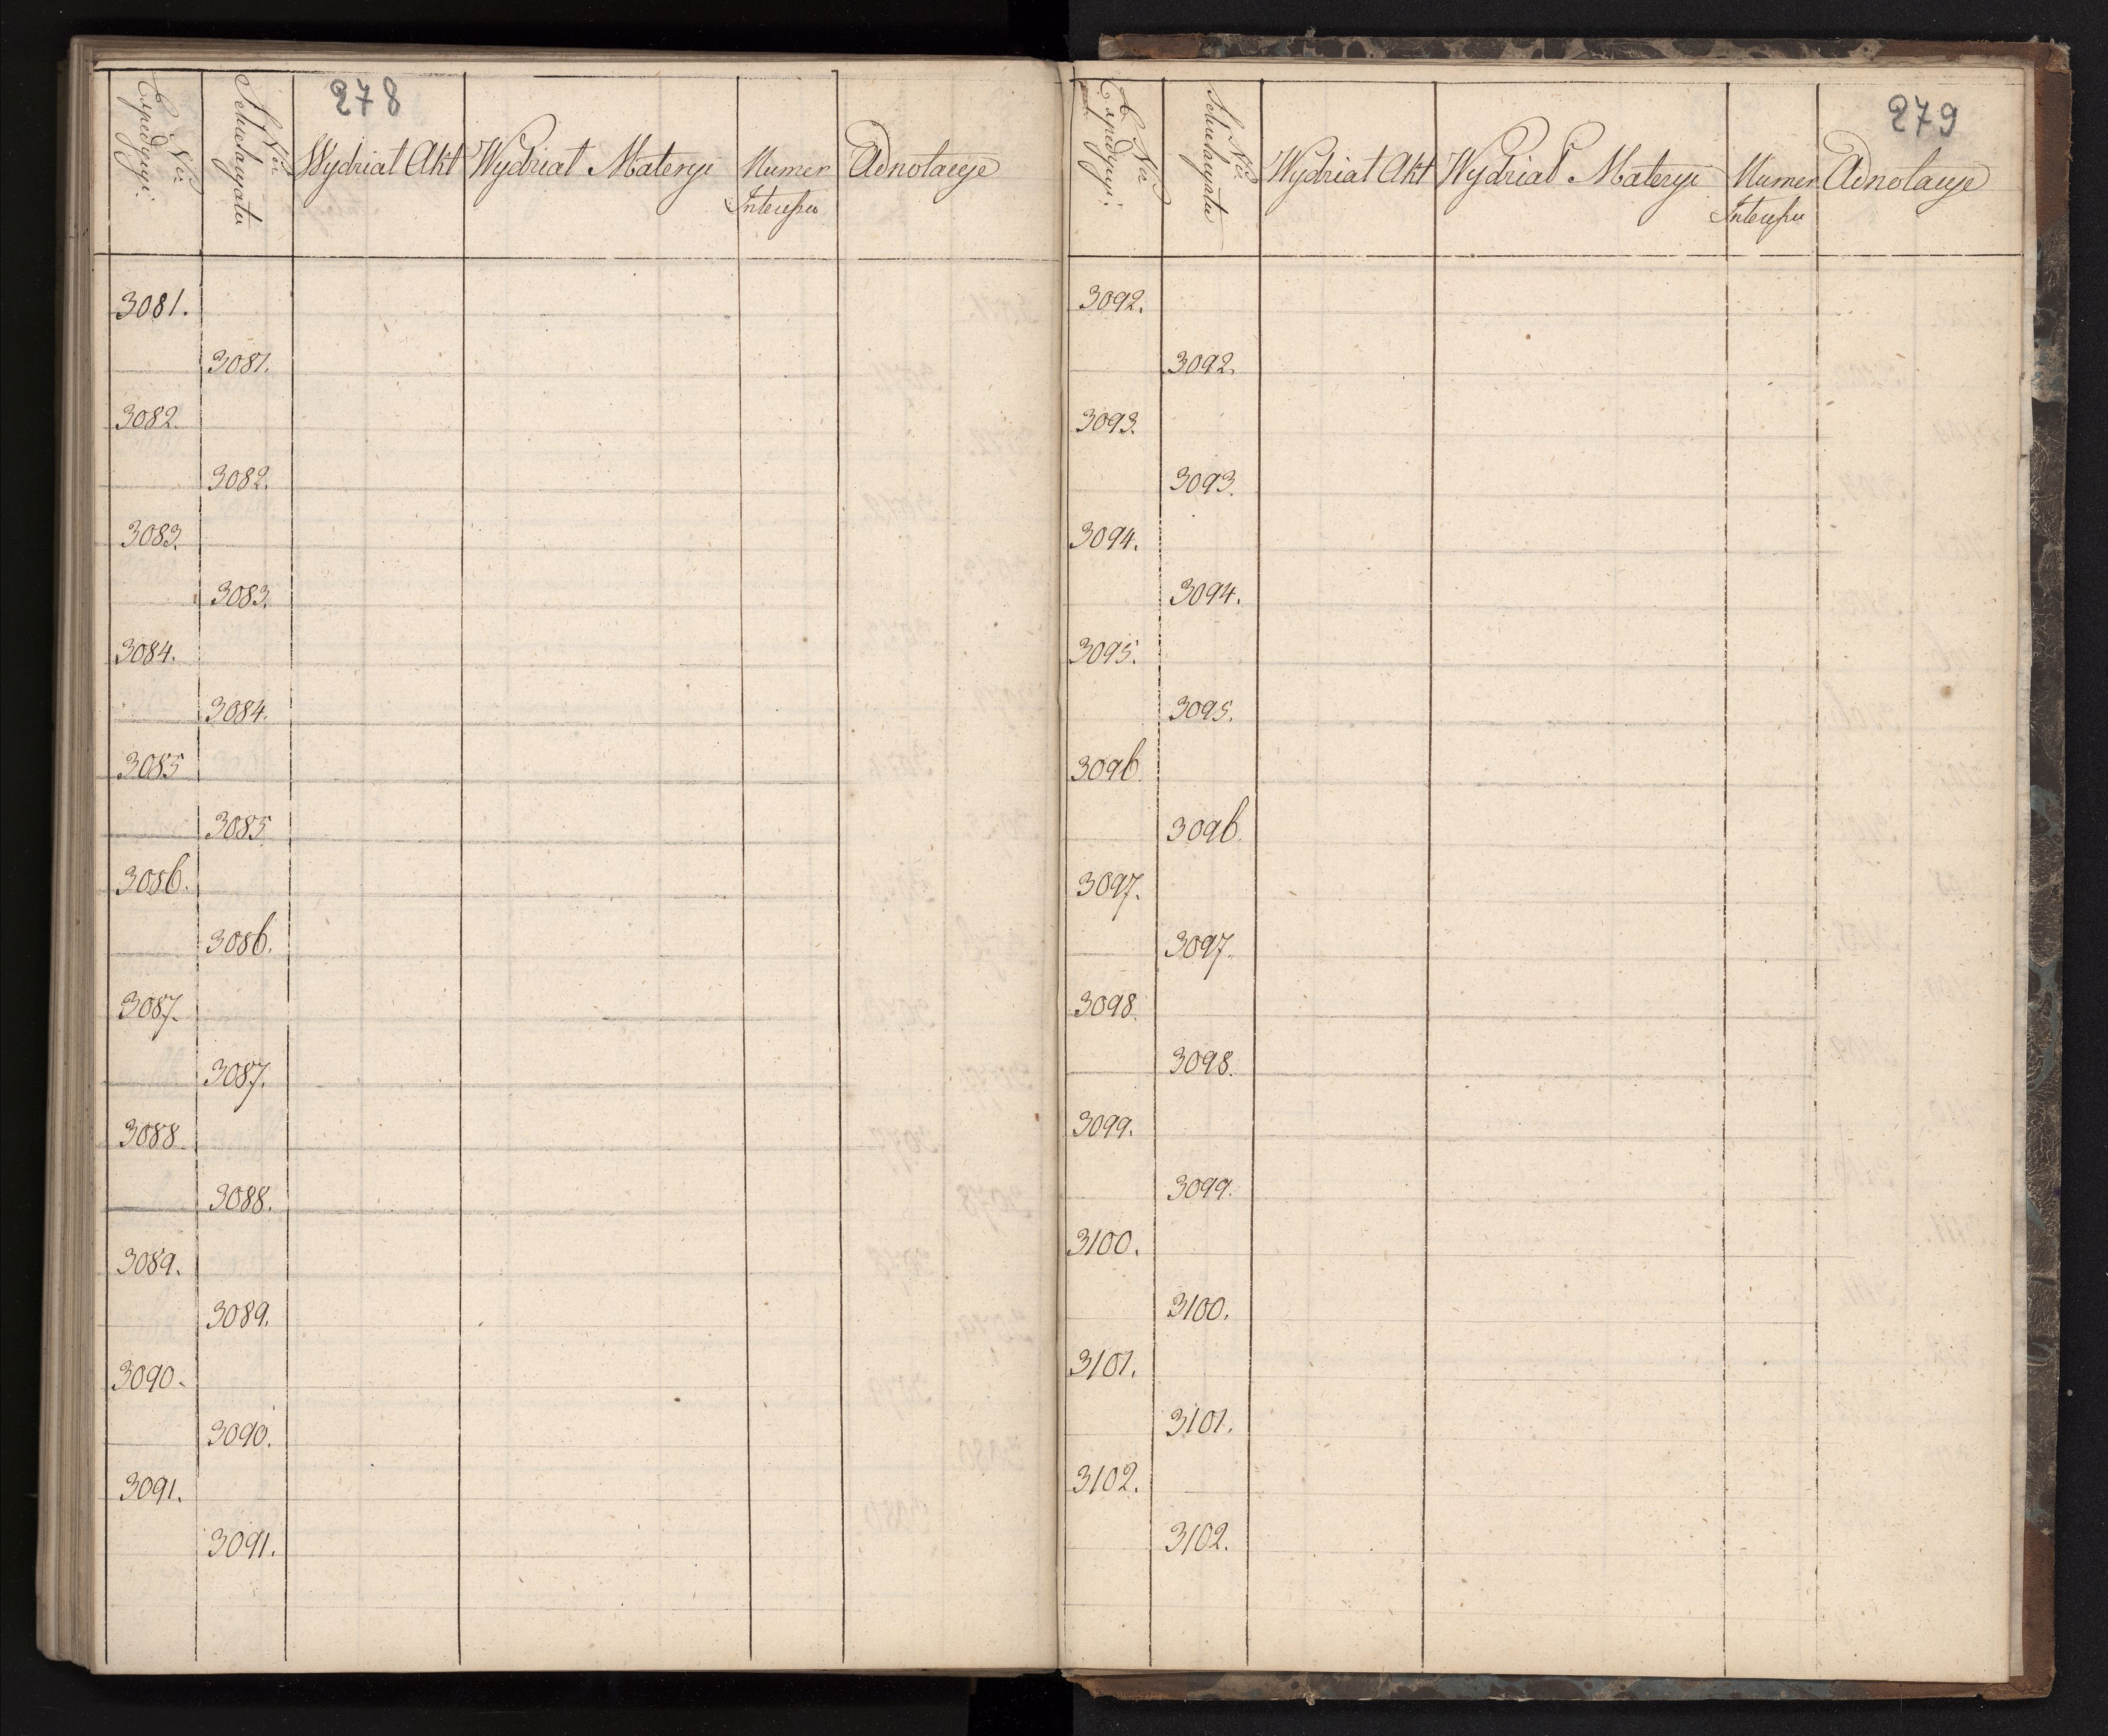 278
Nro Expedycyi.
Nro Schuldayratu
Wydział Akt
Wydział Materyi
Numer
Intcressu
Adnotacye
3081.
3081.
3082.
3082.
3083.
3083.
3084.
3084.
3085
3085
3086.
3086.
3087.
3087.
3088
3088.
3089.
3089.
3090.
3090.
3091.
3091.
279
Nro Expedycyi.
Wydział Akt
Wydział Materyi
Numer
Adnotacye
3092.
3092.
3093.
3093.
3094.
3094.
3095.
3095.
3096
3096.
3097.
3097.
3098.
3098.
3099.
3099.
3100.
3100.
3101.
3101.
3102.
3102.